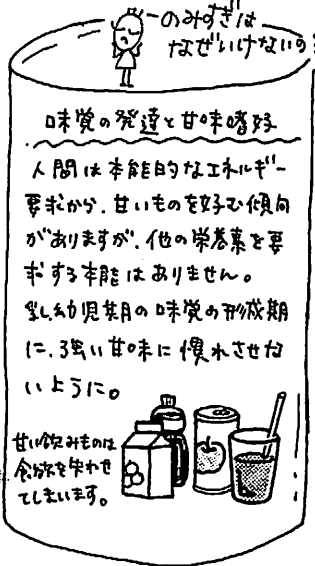 のみすぎは
なぜいけないの?
味覚の発達と甘味嗜好
人間は本能的なエネルギー
要求から、甘いものを好む傾向
がありますが、他の栄養素を要
求する本能はありません。
乳幼児期の味覚の形成期
に、強い甘味に慣れさせな
いように。
甘い飲みものは
食欲を失わせ
てしまいます。